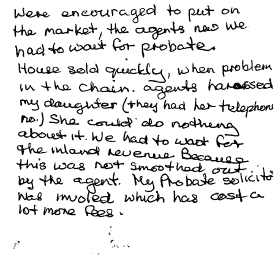 Were encouraged to put on
the market, the agents new we
had to wait for probate.
House sold quickly, when problem
in the chain. agents harossed
my daughter (they had her telephone
no.) She could do nothing
about it. We had to wait for
the inland revenue Because
this was not smoothed out
by the agent. My Probate solicito
was involed which has cost a
lot more fees.